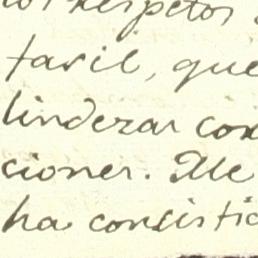 respetos
tavil, que
linderar con
ciones. Me
ha consistid